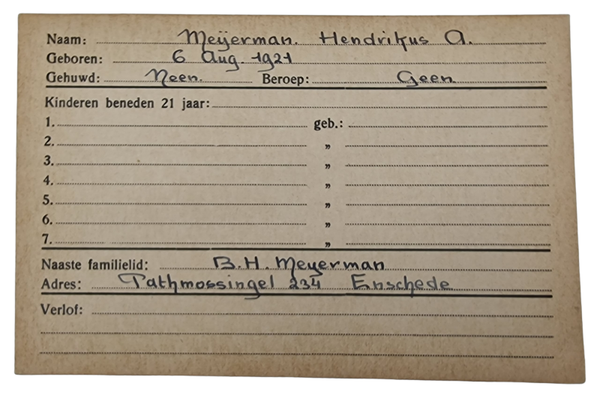 Naam: Meijerman. Hendrikus A.
Geboren: 6 Aug. 1921
Gehuwd: Neen. Beroep: Geen
Kinderen beneden 21 jaar:
1. geb.:
2. „
3. „
4. „
5. „
6. „
7. „
Naaste familielid: B.H. Meyerman
Adres: Pathmossingel 234 Enschede
Verlof: